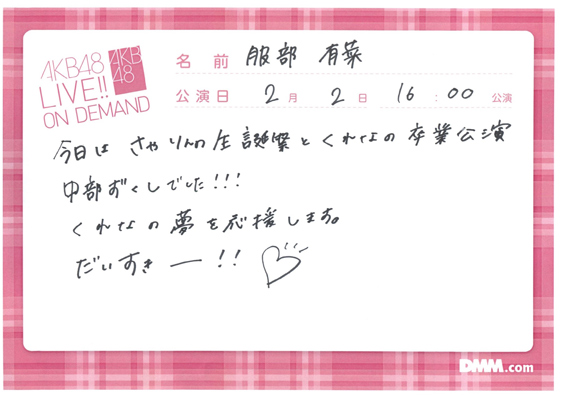 AKB48
LIVE!!
ON DEMAND
AKB
48
名前 服部 有菜
公演日 2月 2日 16:00 公演
今日は さやりんの生誕祭と くれなの卒業公演
中部ずくしでした!!!
くれなの夢を応援します。
だいすきー!!
DMM.com